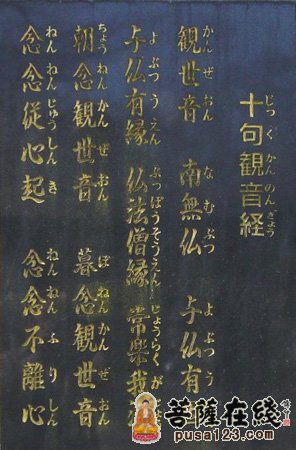 じっくかんのんぎょう
十句観音経
かんぜおん なむぶつ よぶつう
観世音 南無仏 与仏有
よぶつうえん ぶっぽうそうえん じょうらくが
与仏有縁 仏法僧縁 常楽我
ちょうねんかんぜおん ぼねんかんぜおん
朝念観世音 暮念観世音
ねんねんじゅうしんき ねんねんふりしん
念念従心起 念念不離心
菩薩在綫
pusa123.com